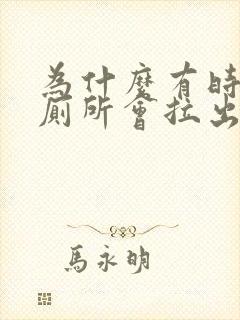 為什麼有時
廁所會拉出
馬永明